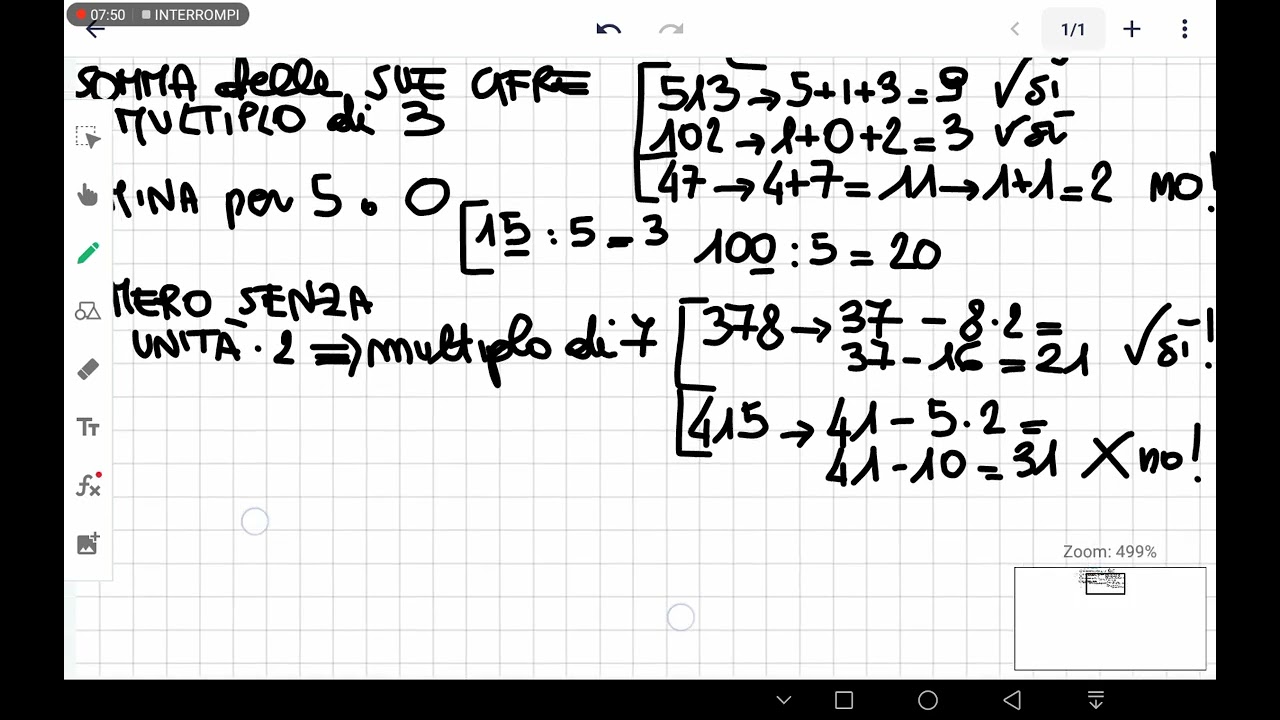 07:50 INTERROMPI
1/1
SOMMA delle SUE CIFRE
MULTIPLO di 3
513 → 5+1+3 = 9 √ sì
102 → 1+0+2 = 3 √ sì
47 → 4+7 = 11 → 1+1 = 2 no!
MINA per 5 o 0
15 : 5 = 3 100 : 5 = 20
MERO SENZA
UNITÀ · 2 ⇒ multiplo di 7
378 → 37 - 8·2 =
37 - 16 = 21 √ sì!
415 → 41 - 5·2 =
41 - 10 = 31 X no!
Tт
fx
Zoom: 499%